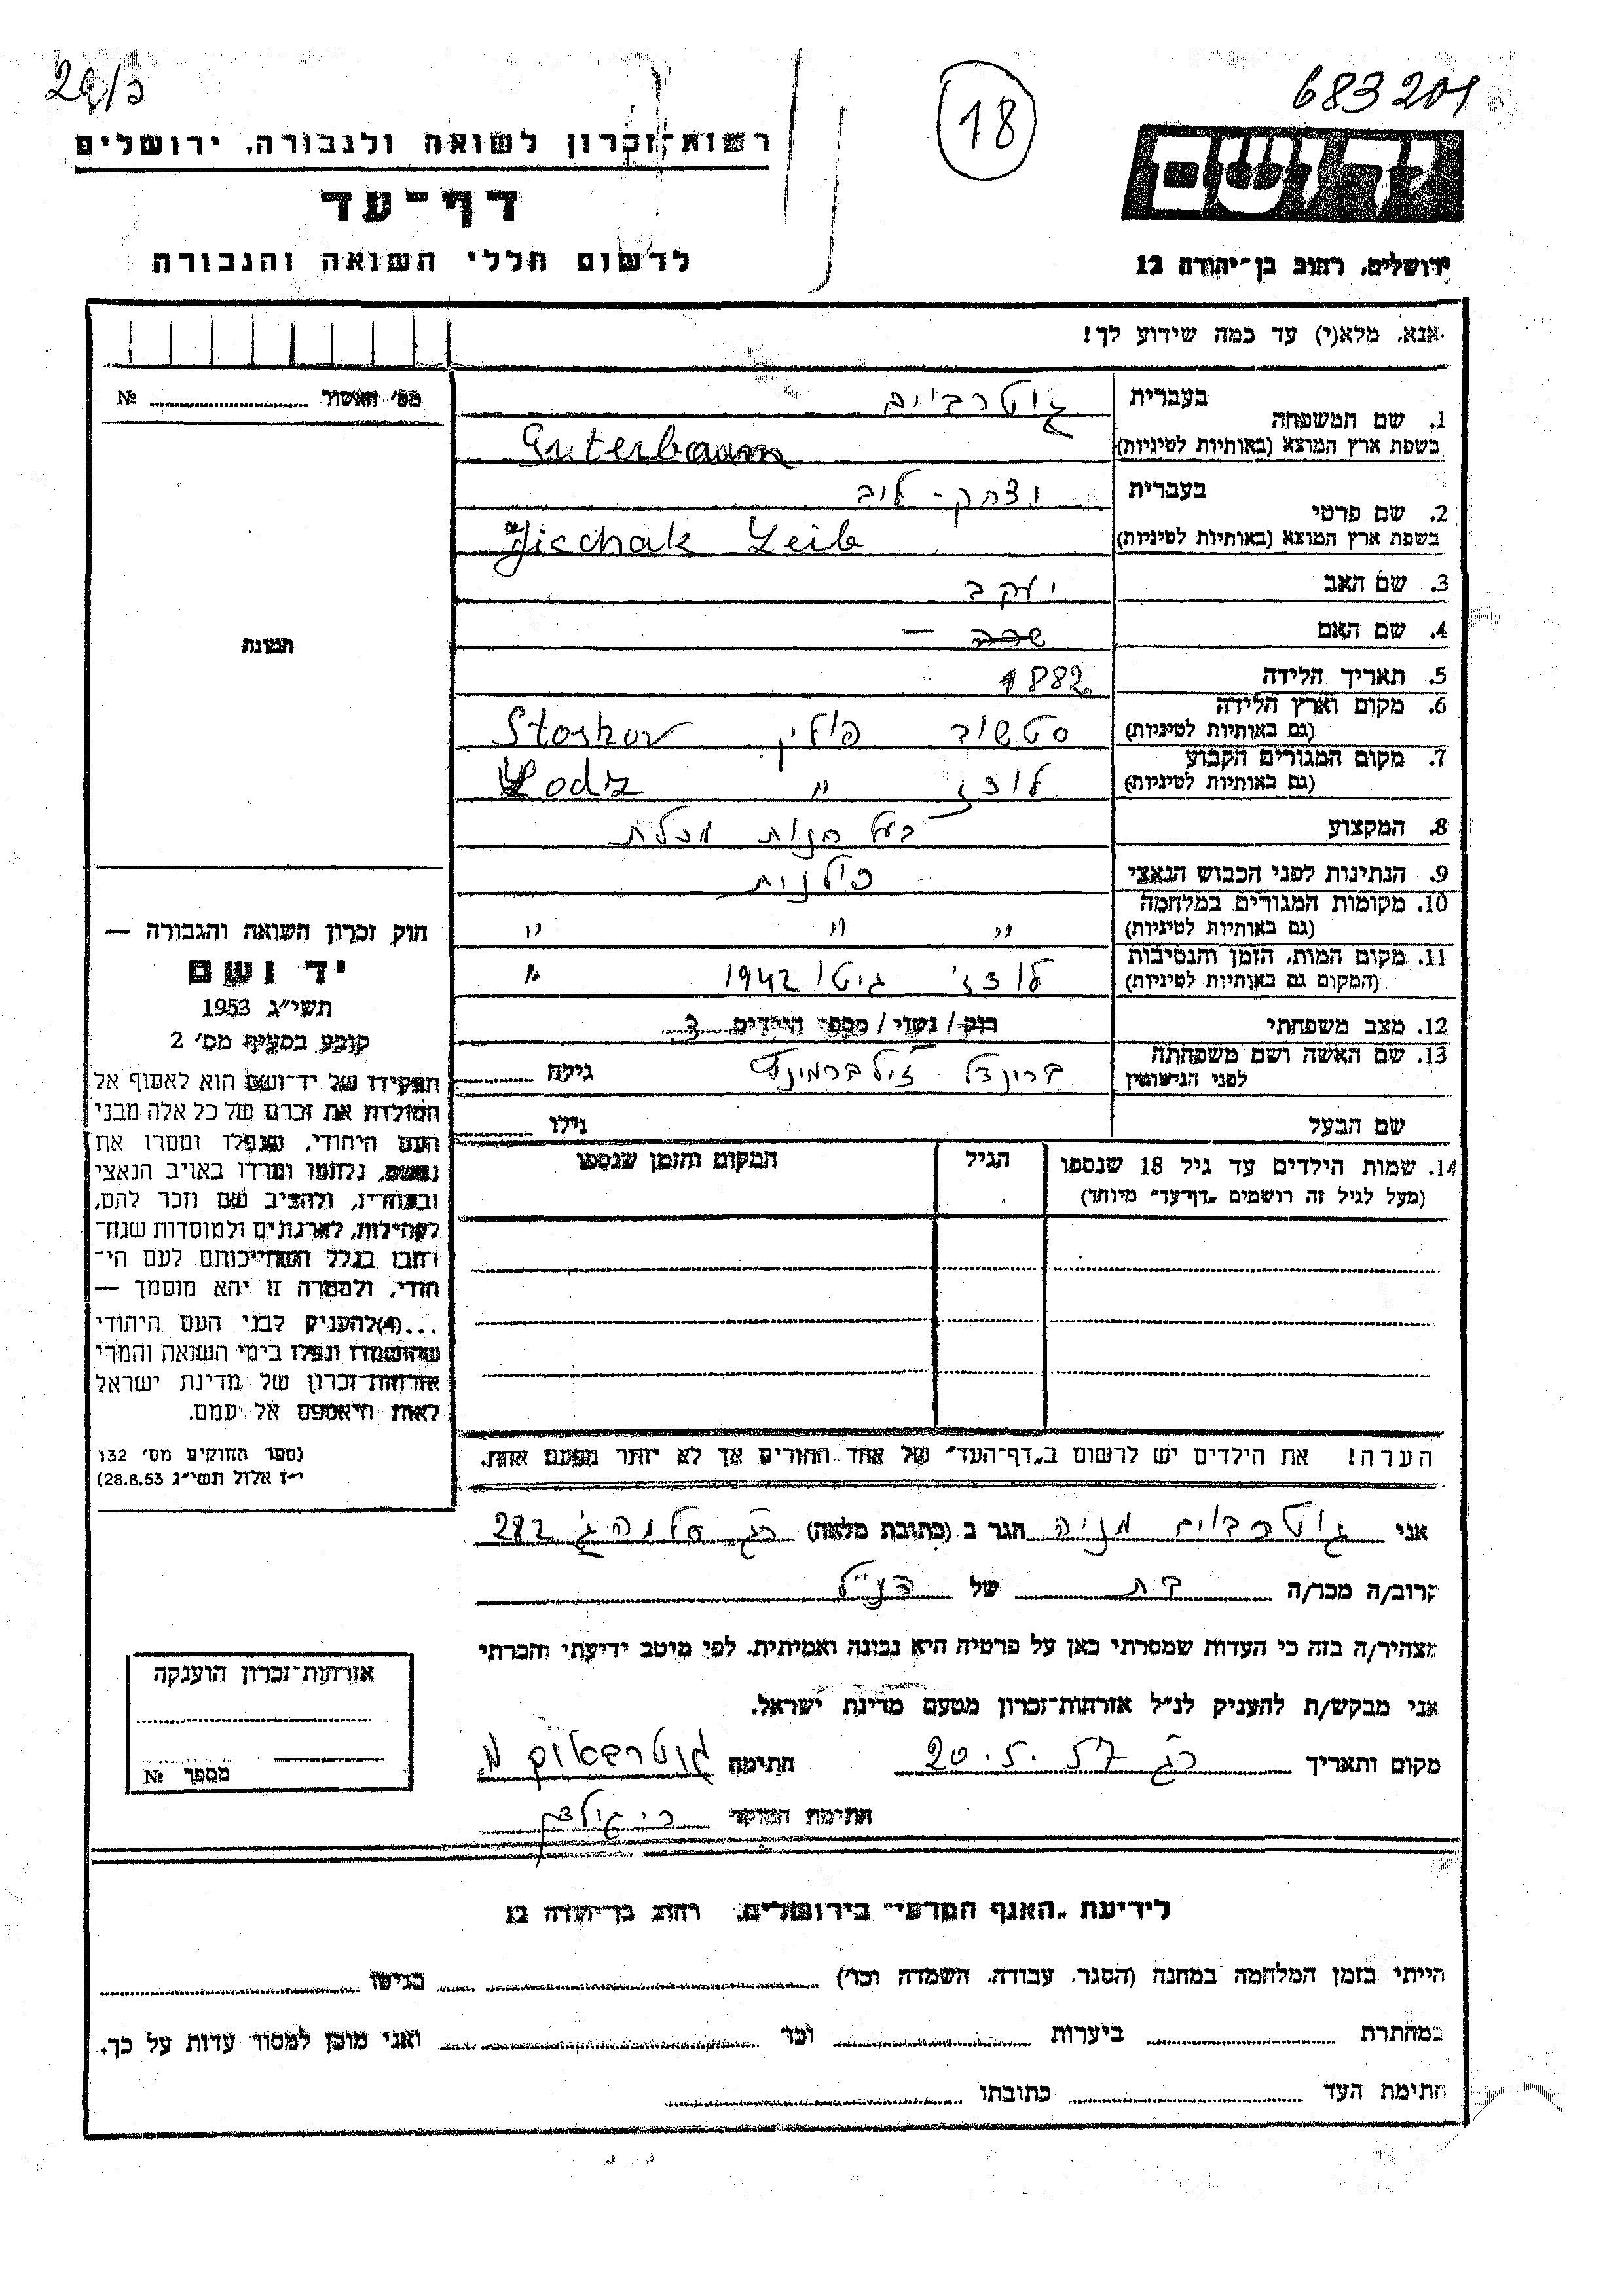 29/כ
18
683201
יד ושם
רשות־זכרון לשואה ולגבורה, ירושלים
דף־עד
לרשום חללי השואה והגבורה
ירושלים, רחוב בן־יהודה 12
אנא, מלא(י) עד כמה שידוע לך!
מס׳ האשור № 
1. שם המשפחה
בעברית גוטרבוים
בשפת ארץ המוצא (באותיות לטיניות) Guterbaum
2. שם פרטי
בעברית יצחק - ליב
בשפת ארץ המוצא (באותיות לטיניות) Jischak Leib
3. שם האב יעקב
4. שם האם שרה —
5. תאריך הלידה 1882
6. מקום וארץ הלידה
(גם באותיות לטיניות) סטשוב פולין Stoshov
7. מקום המגורים הקבוע
(גם באותיות לטיניות) לודז " Lodz
8. המקצוע בעל חנות מכלת
9. הנתינות לפני הכבוש הנאצי פולנית
10. מקומות המגורים במלחמה
(גם באותיות לטיניות) " " "
11. מקום המות, הזמן והנסיבות
(המקום גם באותיות לטיניות) לודז׳ גיטו 1942 "
12. מצב משפחתי רוק / נשוי / מספר הילדים 3
13. שם האשה ושם משפחתה
לפני הנישואין ברונדל זילברמינץ גילה
שם הבעל גילו
14. שמות הילדים עד גיל 18 שנספו הגיל המקום והזמן שנספו
(מעל לגיל זה רושמים „דף־עד" מיוחד)
תמונה
חוק זכרון השואה והגבורה —
יד ושם
תשי״ג 1953
קובע בסעיף מס׳ 2
תפקידו של יד־ושם הוא לאסוף אל
המולדת את זכרם של כל אלה מבני
העם היהודי, שנפלו ומסרו את
נפשם, נלחמו ומרדו באויב הנאצי
ובעוזריו, ולהציב שם וזכר להם,
לקהילות, לארגונים ולמוסדות שנח־
רבו בגלל השתייכותם לעם הי־
הודי, ולמטרה זו יהא מוסמך —
...(4)להעניק לבני העם היהודי
שהושמדו ונפלו בימי השואה והמרי
אזרחות־זכרון של מדינת ישראל
לאות היאספם אל עמם.
(ספר החוקים מס׳ 132
י״ז אלול תשי״ג 28.8.53)
הערה! את הילדים יש לרשום ב„דף־העד" של אחד ההורים אך לא יותר מפעם אחת.
אני גוטרבוים מניה הגר ב (כתובת מלאה) רג 282
קרוב/ה מכר/ה בת של הנ״ל
מצהיר/ה בזה כי העדות שמסרתי כאן על פרטיה היא נכונה ואמיתית, לפי מיטב ידיעתי והכרתי
אני מבקש/ת להעניק לנ״ל אזרחות־זכרון מטעם מדינת ישראל.
מקום ותאריך רג 20.5.57 חתימה גוטרבאום מ
חתימת הפוקד
אזרחות־זכרון הוענקה
מספר №
לידיעת „האגף המדעי" בירושלים, רחוב בן־יהודה 12
הייתי בזמן המלחמה במחנה (הסגר, עבודה, השמדה וכו׳) בגיטו
במחתרת ביערות וכו׳ ואני מוכן למסור עדות על כך.
חתימת העד כתובתו